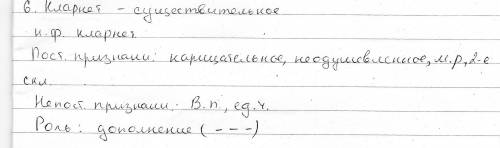 6. Кларнет - существительное
н.ф. кларнет
Пост. признаки: нарицательное, неодушевленное, м.р, 2-е
скл.
Непост. признаки: В.п, ед.ч.
Роль: дополнение (- - -)